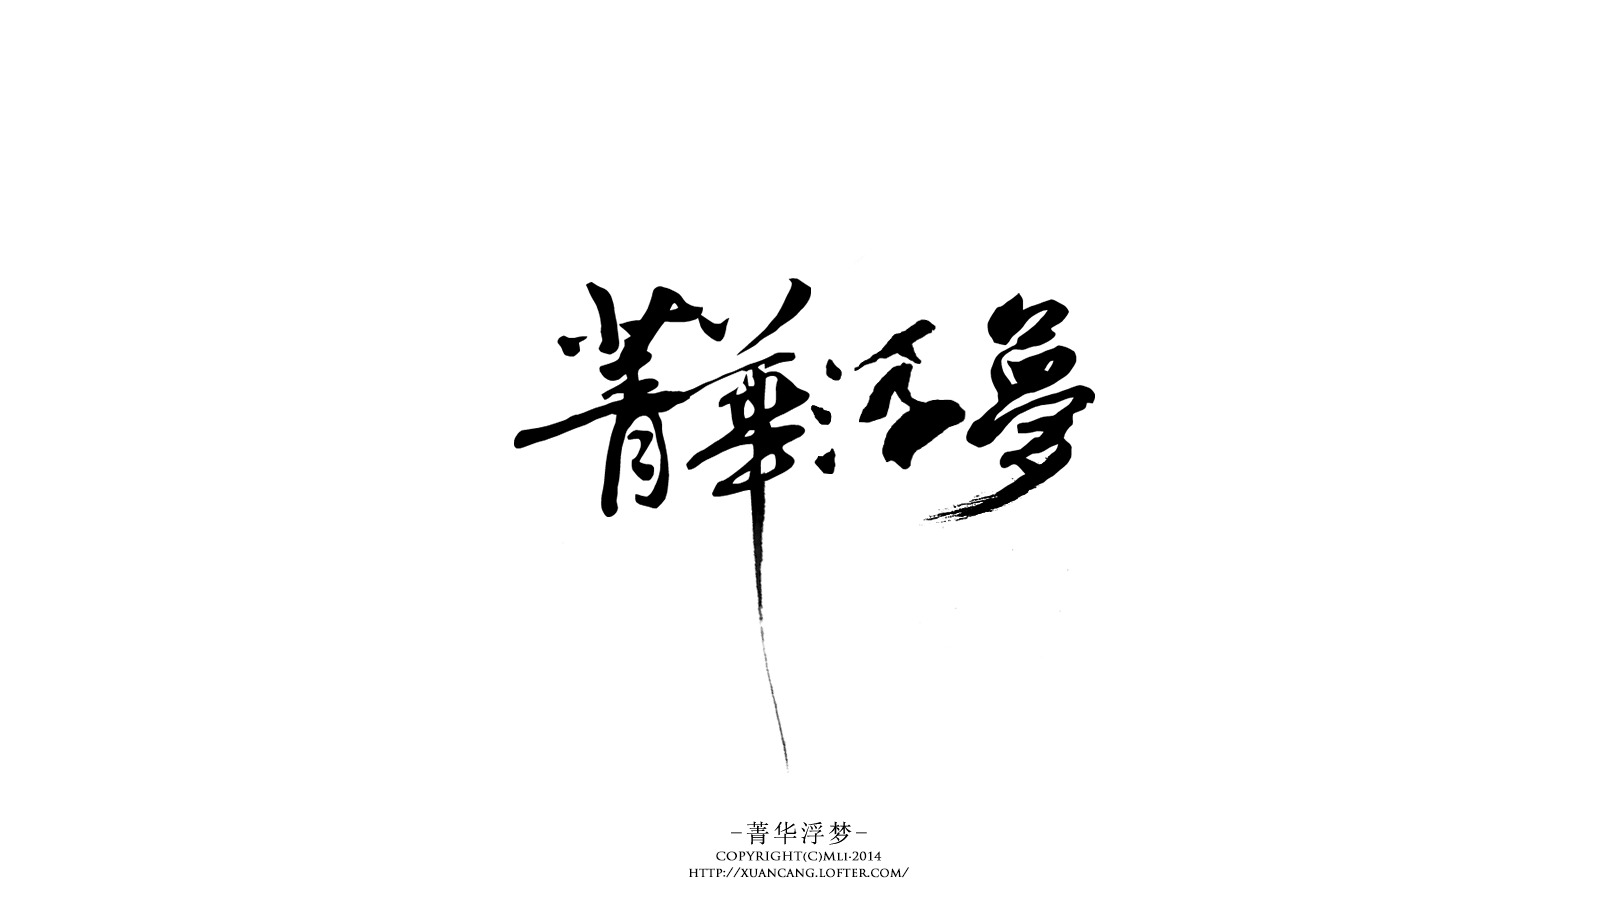 菁華浮夢
-菁华浮梦-
COPYRIGHT(C)MLI·2014
HTTP://XUANCANG.LOFTER.COM/